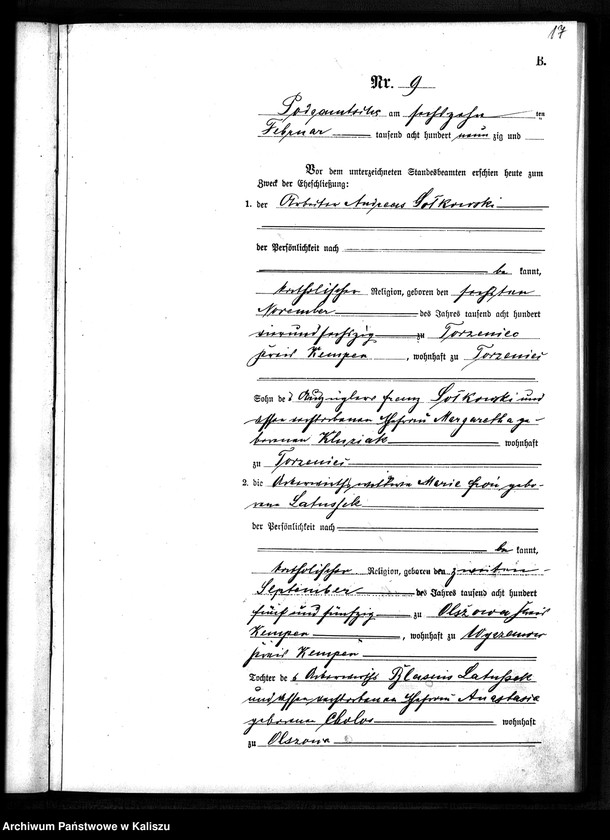 17
B.
Nr. 9
Podzamtsche am sechszehn ten
Februar tausend acht hundert neun zig und
Vor dem unterzeichneten Standesbeamten erschien heute zum
Zweck der Eheschließung:
1. der Arbeiter Andreas Sołkowski
der Persönlichkeit nach
be kannt,
katholischer Religion, geboren den sechsten
November des Jahres tausend acht hundert
vierundsechszig zu Torzeniec
Kreis Kempen, wohnhaft zu Torzeniec
Sohn des Auszüglers Franz Sołkowski und
dessen verstorbenen Ehefrau Margaretha ge-
borenen Kluziak wohnhaft
zu Torzeniec
2. die Ackerwirthswittwe Marie gebo-
rene Latussek
der Persönlichkeit nach
be kannt,
katholischer Religion, geboren den zweiten
September des Jahres tausend acht hundert
fünf und fünfzig zu Olszowa Kreis
Kempen, wohnhaft zu
Kreis Kempen
Tochter des Ackerwirths Blasius Latussek
und dessen verstorbenen Ehefrau Anastasia
geborene Cholos wohnhaft
zu Olszowa
Archiwum Państwowe w Kaliszu